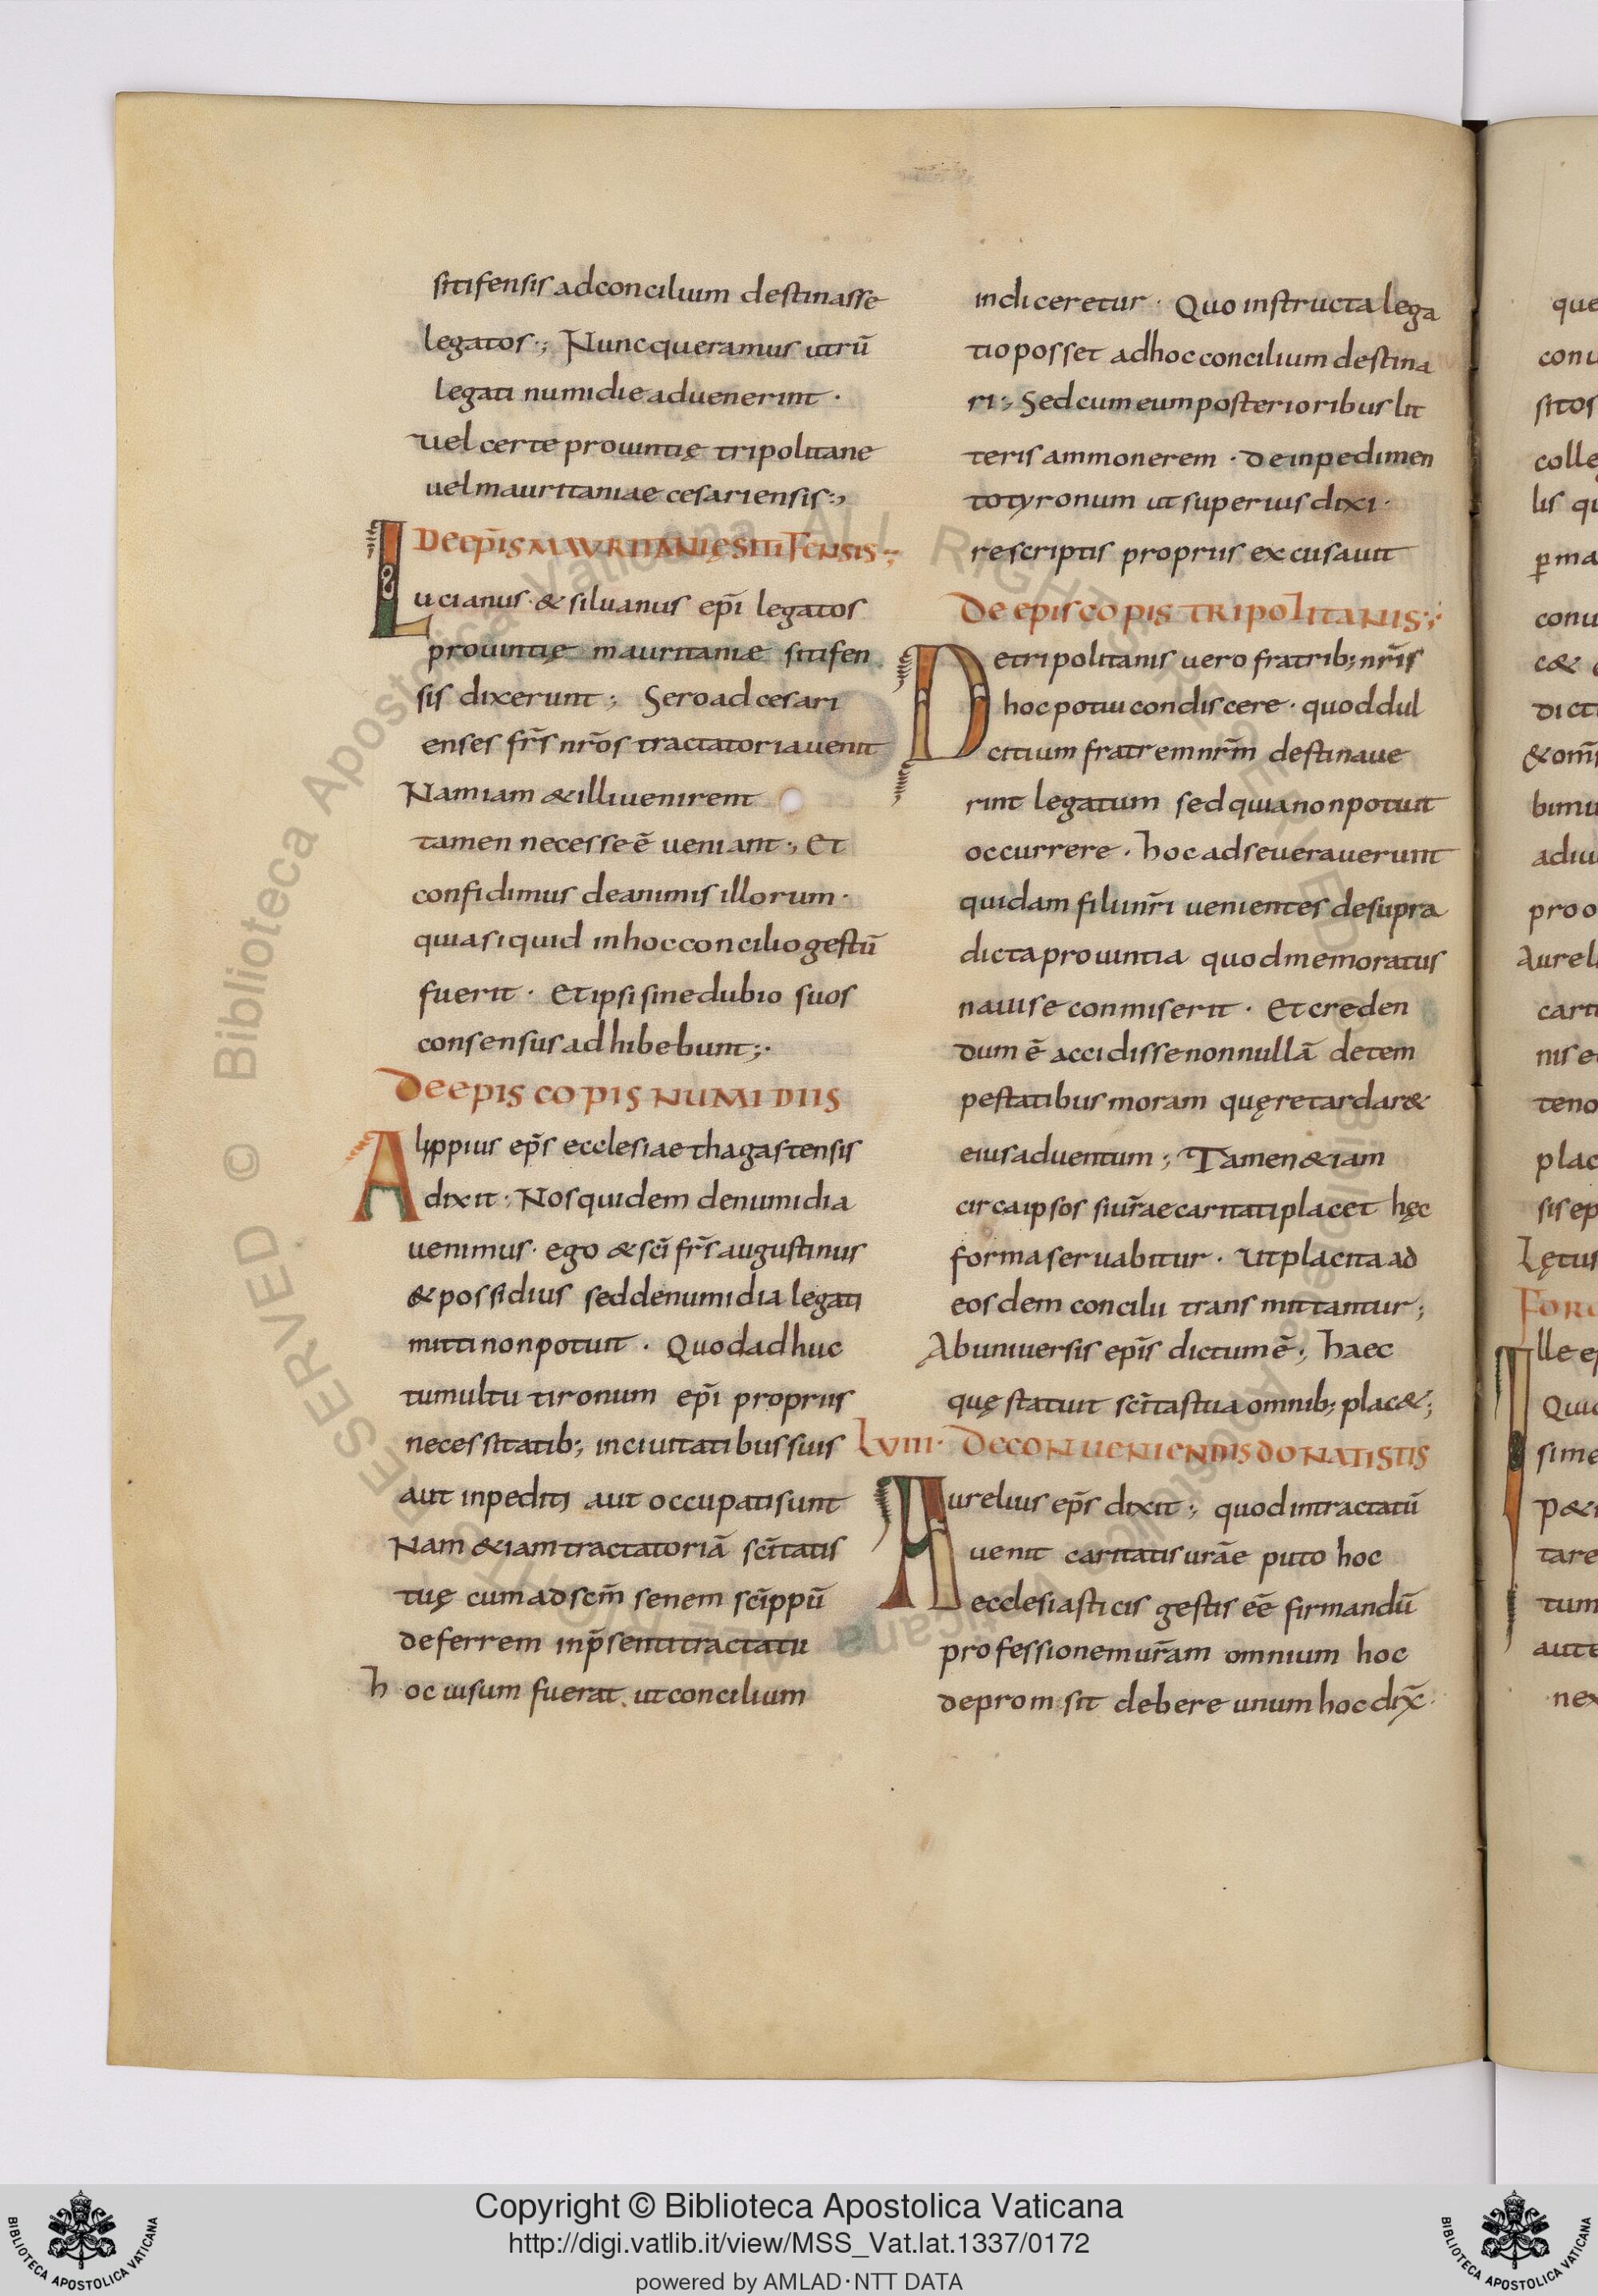 sitifensis ad concilium destinasse
legatos; Nunc queramus utrū
legati numidie aduenerint ·
uel certe prouintię tripolitane
uel mauritaniae cesariensis;
De ep̄is mauritanię sitifensis;
Lucianus · & siluanus ep̄i legatos
prouintię mauritaniæ sitifen
sis dixerunt; Sero ad cesari
enses fr̄s nr̄os tractatoria uenit
Nam iam & illi uenirent
tamen necesse ē ueniant; Et
confidimus de animis illorum ·
quia si quid in hoc concilio gestū
fuerit · Et ipsi sine dubio suos
consensus adhibebunt;
De episcopis numidiis
Alippius ep̄s ecclesiae thagastensis
dixit · Nos quidem de numidia
uenimus · ego & sc̄i fr̄s augustinus
& possidius sed de numidia legati
mitti non potuit · Quod adhuc
tumultu tironum ep̄i propriis
necessitatib; in ciuitatibus suis
aut inpediti aut occupati sunt
Nam & iam tractatoriā sc̄itatis
tuę cum ad sc̄m senem sc̄ippū
deferrem in p̄senti tractatu
hoc uisum fuerat ut concilium
indiceretur · Quo instructa lega
tio posset ad hoc concilium destina
ri; Sed cum eum posterioribus lit
teris ammonerem · de inpedimen
to tyronum ut superius dixi ·
rescriptis propriis excusauit
De episcopis tripolitanis;
De tripolitanis uero fratrib; nr̄is
hoc potui condiscere · quod dul
citium fratrem nr̄m destinaue
rint legatum sed quia non potuit
occurrere · hoc adseuerauerunt
quidam filii nr̄i uenientes de supra
dicta prouintia quod memoratus
naui se conmiserit · Et creden
dum ē accidisse nonnullā de tem
pestatibus moram quę retardar&
eius aduentum; Tamen & iam
circa ipsos si ur̄ae caritati placet hęc
forma seruabitur · ut placita ad
eosdem concilii transmittantur;
Ab uniuersis ep̄is dictum ē; haec
quę statuit sc̄itas tua omnib; plac&;
Lviii · De conueniendis donatistis
Aurelius ep̄s dixit; quod in tractatū
uenit caritatis urāe puto hoc
ecclesiasticis gestis eē firmandū
professionem ur̄am omnium hoc
deprom sit debere unum hoc dix̄ ·
Copyright © Biblioteca Apostolica Vaticana
http://digi.vatlib.it/view/MSS_Vat.lat.1337/0172
powered by AMLAD·NTT DATA